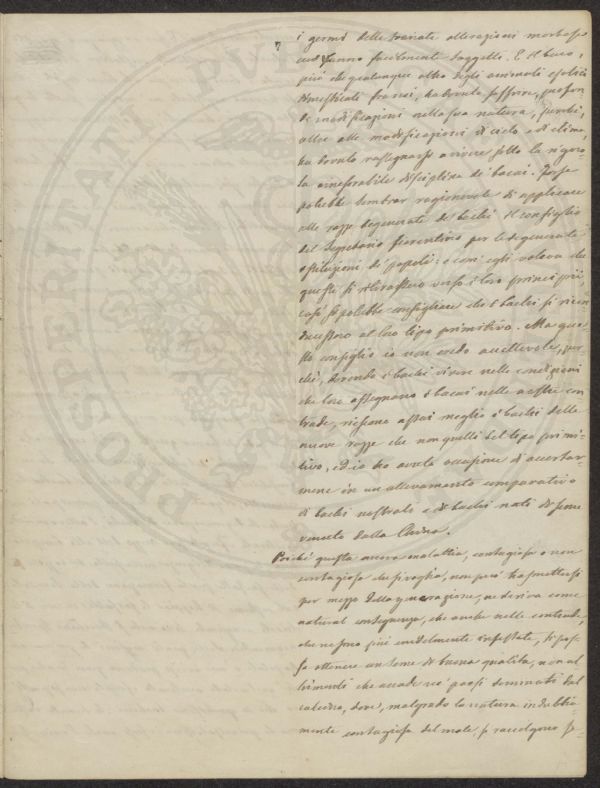 7
i germi delle svariate alterazioni morbose
cui vanno facilmente soggetti. E il baco,
più che qualunque altro degli animali esotici
dimesticati fra noi, ha dovuto soffrire profon
de modificazioni nella sua natura, perchè,
oltre alle modificazioni di cielo e di clima,
ha dovuto rassegnarsi a vivere sotto la rigoro-
sa inesorabile disciplina de' bacai. Forse
potrebbe sembrar ragionevole di applicare
alle razze degenerate dei bachi il consiglio
del Segretario fiorentino per le degenerate
istituzioni de' popoli: e com' egli voleva che
queste si ritirassero verso i loro principii,
così si potrebbe consigliare che i bachi si ricon
ducessero al loro tipo primitivo. Ma que-
sto consiglio io non credo accettevole, per-
chè, dovendo i bachi vivere nelle condizioni
che loro assegnano i bacai nelle nostre con
trade, riescono assai meglio i bachi delle
nuove razze che non quelli del tipo primi-
tivo, ed io ho avuto occasione di accertar-
mene in un allevamento comparativo
di bachi nostrali e di bachi nati di seme
venuto dalla China.
Poichè questa nuova malattia, contagiosa o non
contagiosa che si voglia, non può trasmettersi
per mezzo della generazione, ne deriva come
natural conseguenza, che anche nelle contrade,
che ne sono più crudelmente infestate, si pos-
sa ottenere un seme di buona qualità, non al
trimenti che accade ne' paesi dominati dal
calcino, dove, malgrado la natura indubbia-
mente contagiosa del male, si raccolgono se-
PROSPERI PVB